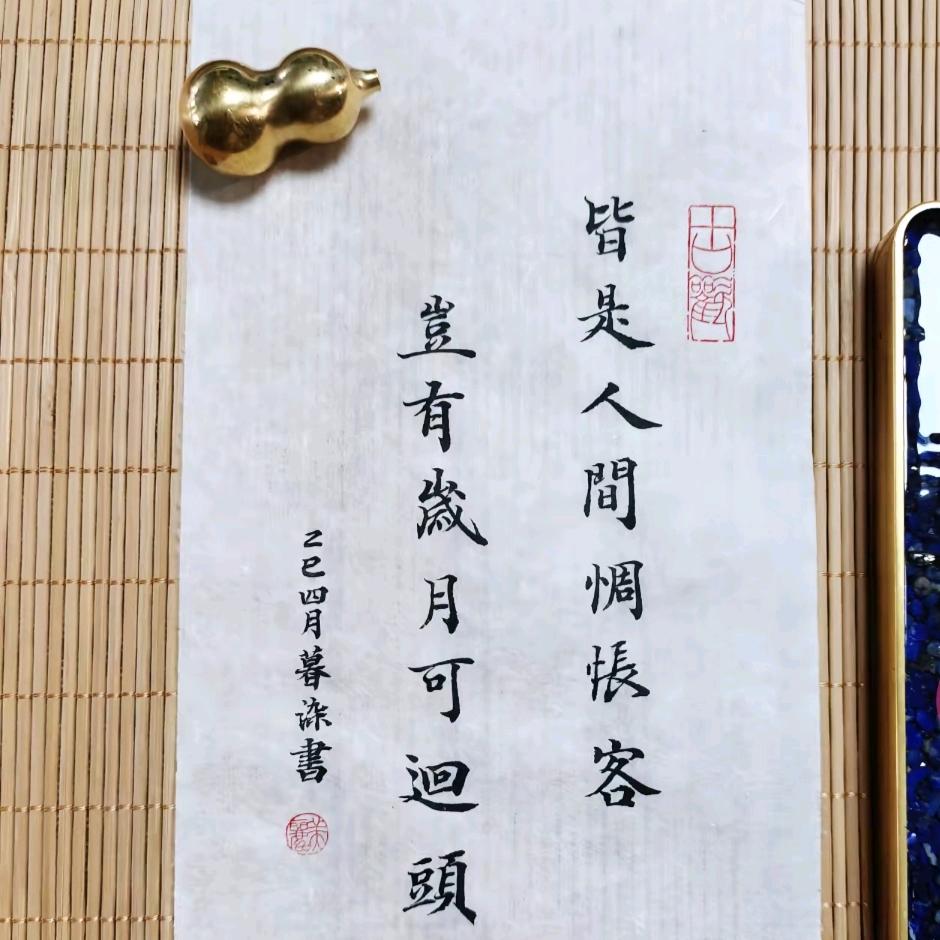 皆是人間惆悵客
豈有歲月可迴頭
乙巳四月暮染書